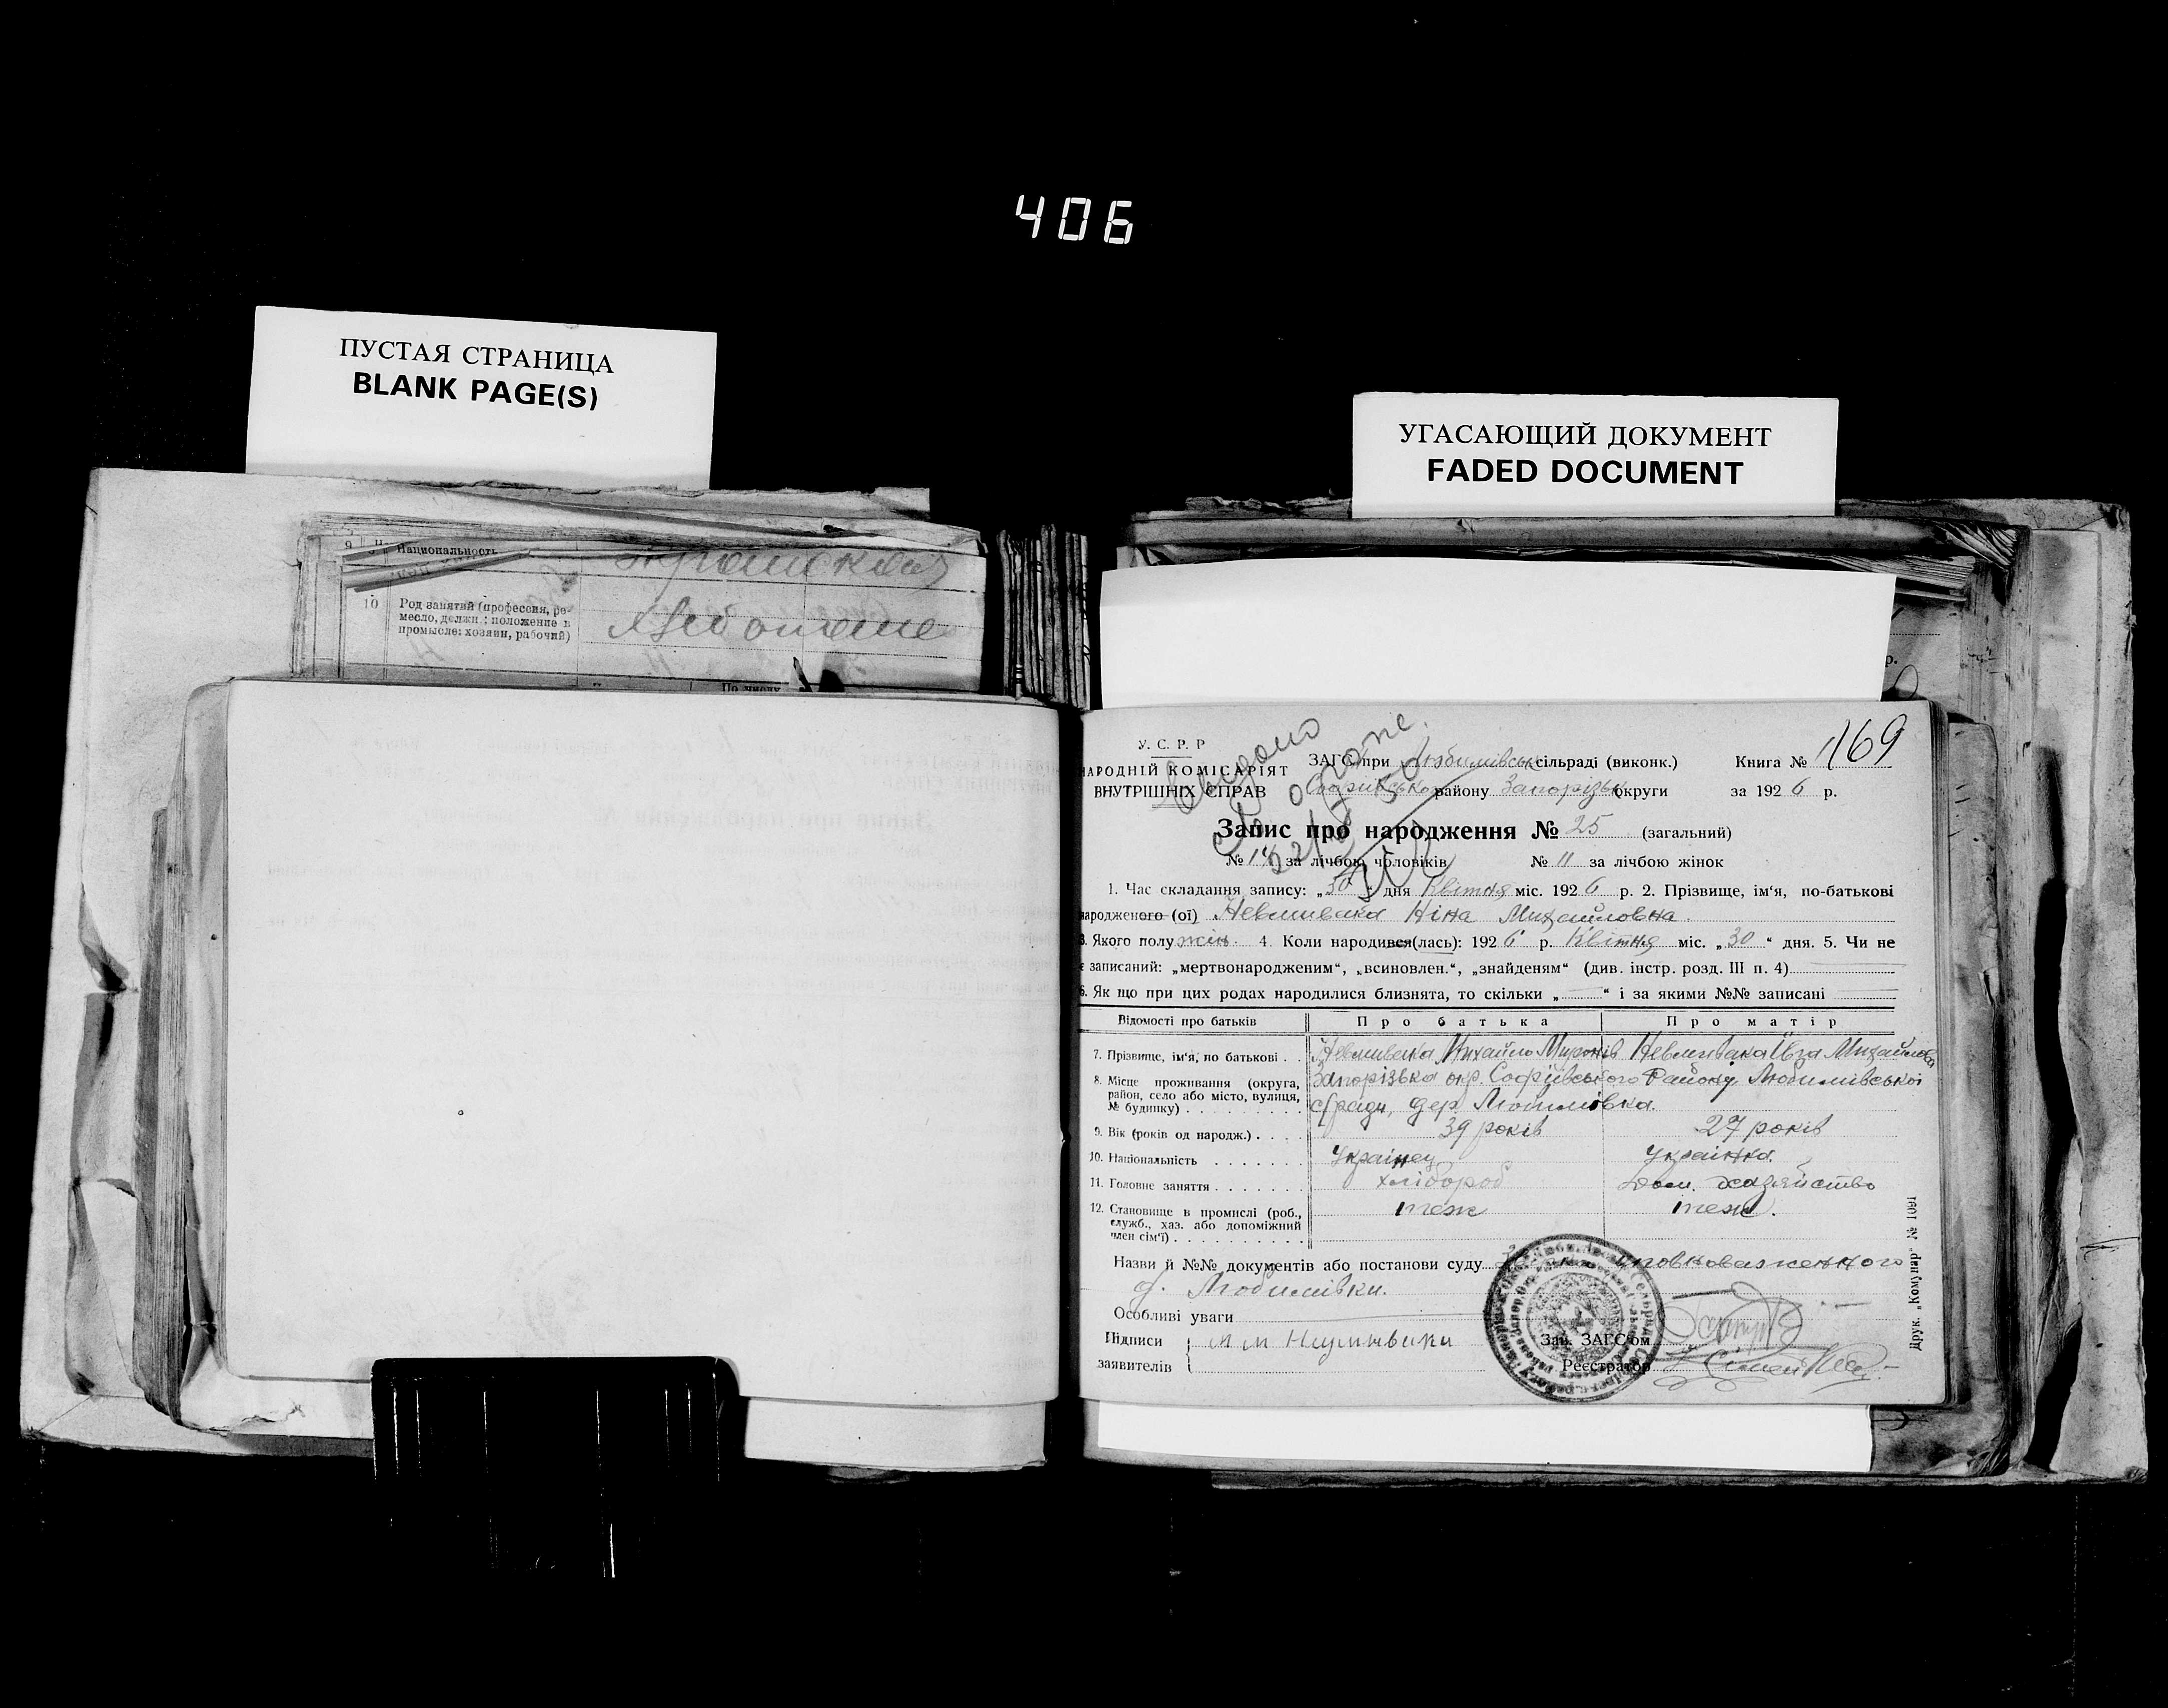 406
ПУСТАЯ СТРАНИЦА
BLANK PAGE(S)
УГАСАЮЩИЙ ДОКУМЕНТ
FADED DOCUMENT
9 Национальность
10 Род занятий (профессия, ре-
месло, должн.; положение в
промысле: хозяин, рабочий)
По числу
169
У. С. Р. Р
НАРОДНІЙ КОМІСАРІЯТ
ВНУТРІШНІХ СПРАВ
ЗАГС при Любимівськ сільраді (виконк.) Книга №
Софіївсько району Запорізьк округи за 1926 р.
Запис про народження № 25 (загальний)
№ 14 за лічбою чоловіків № 11 за лічбою жінок
1. Час складання запису: „30“ дня Квітня міс. 1926 р. 2. Прізвище, ім‘я, по-батькові
народженого (ої) Невмивака Ніна Михайловна
3. Якого полу жін. 4. Коли народився(лась): 1926 р. Квітня міс. „30“ дня. 5. Чи не
є записаний: „мертвонародженим“, „всиновлен.“, „знайденям“ (див. інстр. розд. III п. 4)
6. Як що при цих родах народилися близнята, то скільки „ “ і за якими №№ записані
Відомості про батьків Про батька Про матір
7. Прізвище, ім‘я, по батькові Невмивака Михайло Миронів Невмивака Михайлова
8. Місце проживання (округа, район, село або місто, вулиця, № будинку) Запорізька окр. Софіївського Району Любимівської
с/ради, дер. Любимівка.
9. Вік (років од народж.) 39 років 27 років
10. Національність Українец Українка.
11. Головне заняття хлібороб Дом. хазяйство
12. Становище в промислі (роб., служб., хаз. або допоміжний член сім‘ї) теж теж.
Назви й №№ документів або постанови суду уповноваженного
д. Любимівки.
Особливі уваги
Підписи
заявителів
Зав. ЗАГС‘ом
Реєстратор
Друк. „Комунар“ № 1091